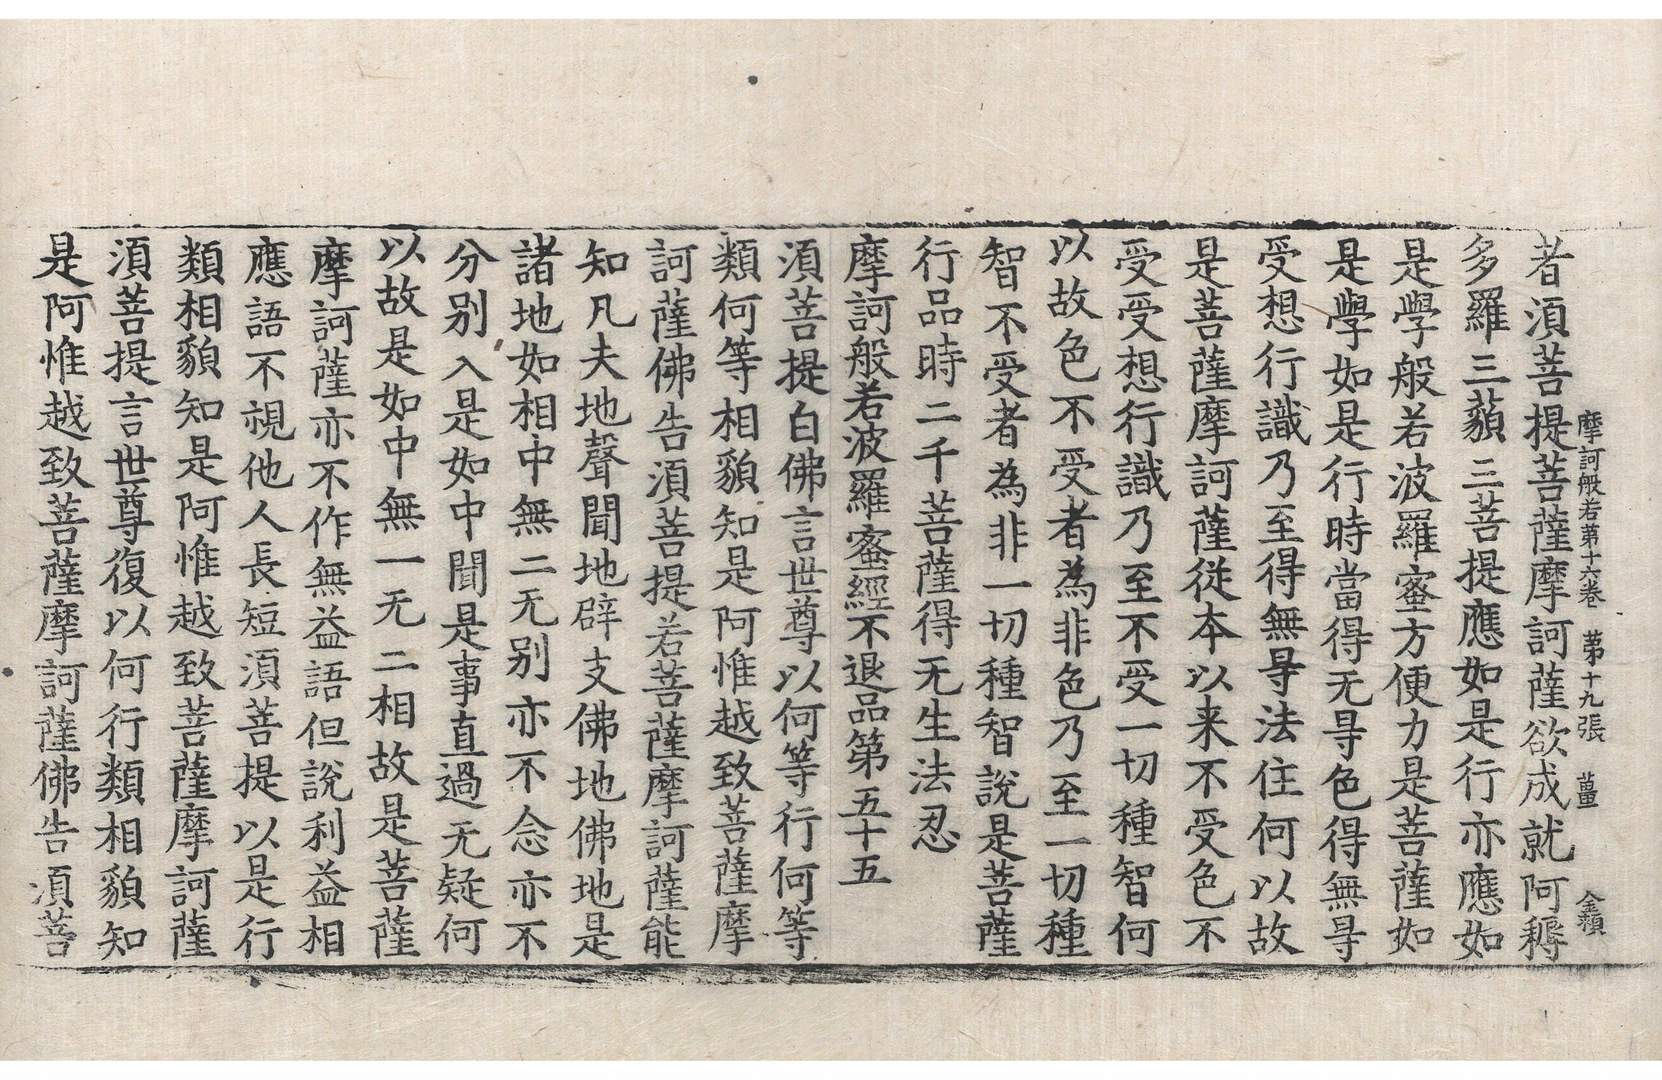 摩訶般若第十六卷　第十九張　薑　金額
者湏菩提菩薩摩訶薩欲成就阿耨
多羅三藐三菩提應如是行亦應如
是學般若波羅蜜方便力是菩薩如
是學如是行時當得无㝵色得無㝵
受想行識乃至得無㝵法住何以故
是菩薩摩訶薩從本以来不受色不
受受想行識乃至不受一切種智何
以故色不受者為非色乃至一切種
智不受者為非一切種智說是菩薩
行品時二千菩薩得无生法忍
摩訶般若波羅蜜經不退品第五十五
湏菩提白佛言世尊以何等行何等
類何等相貌知是阿惟越致菩薩摩
訶薩佛告湏菩提若菩薩摩訶薩能
知凡夫地聲聞地辟支佛地佛地是
諸地如相中無二无别亦不念亦不
分别入是如中聞是事直過无疑何
以故是如中無一无二相故是菩薩
摩訶薩亦不作無益語但說利益相
應語不視他人長短湏菩提以是行
類相貌知是阿惟越致菩薩摩訶薩
湏菩提言世尊復以何行類相貌知
是阿惟越致菩薩摩訶薩佛告湏菩